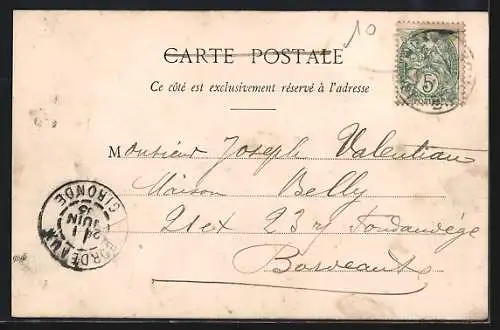 10
CARTE POSTALE
Ce côté est exclusivement réservé à l'adresse
5
POSTES
Monsieur Joseph Valentian
Maison Belly
21 et 23 rue Fondaudège
Bordeaux
BORDEAUX
24
JUIN
GIRONDE